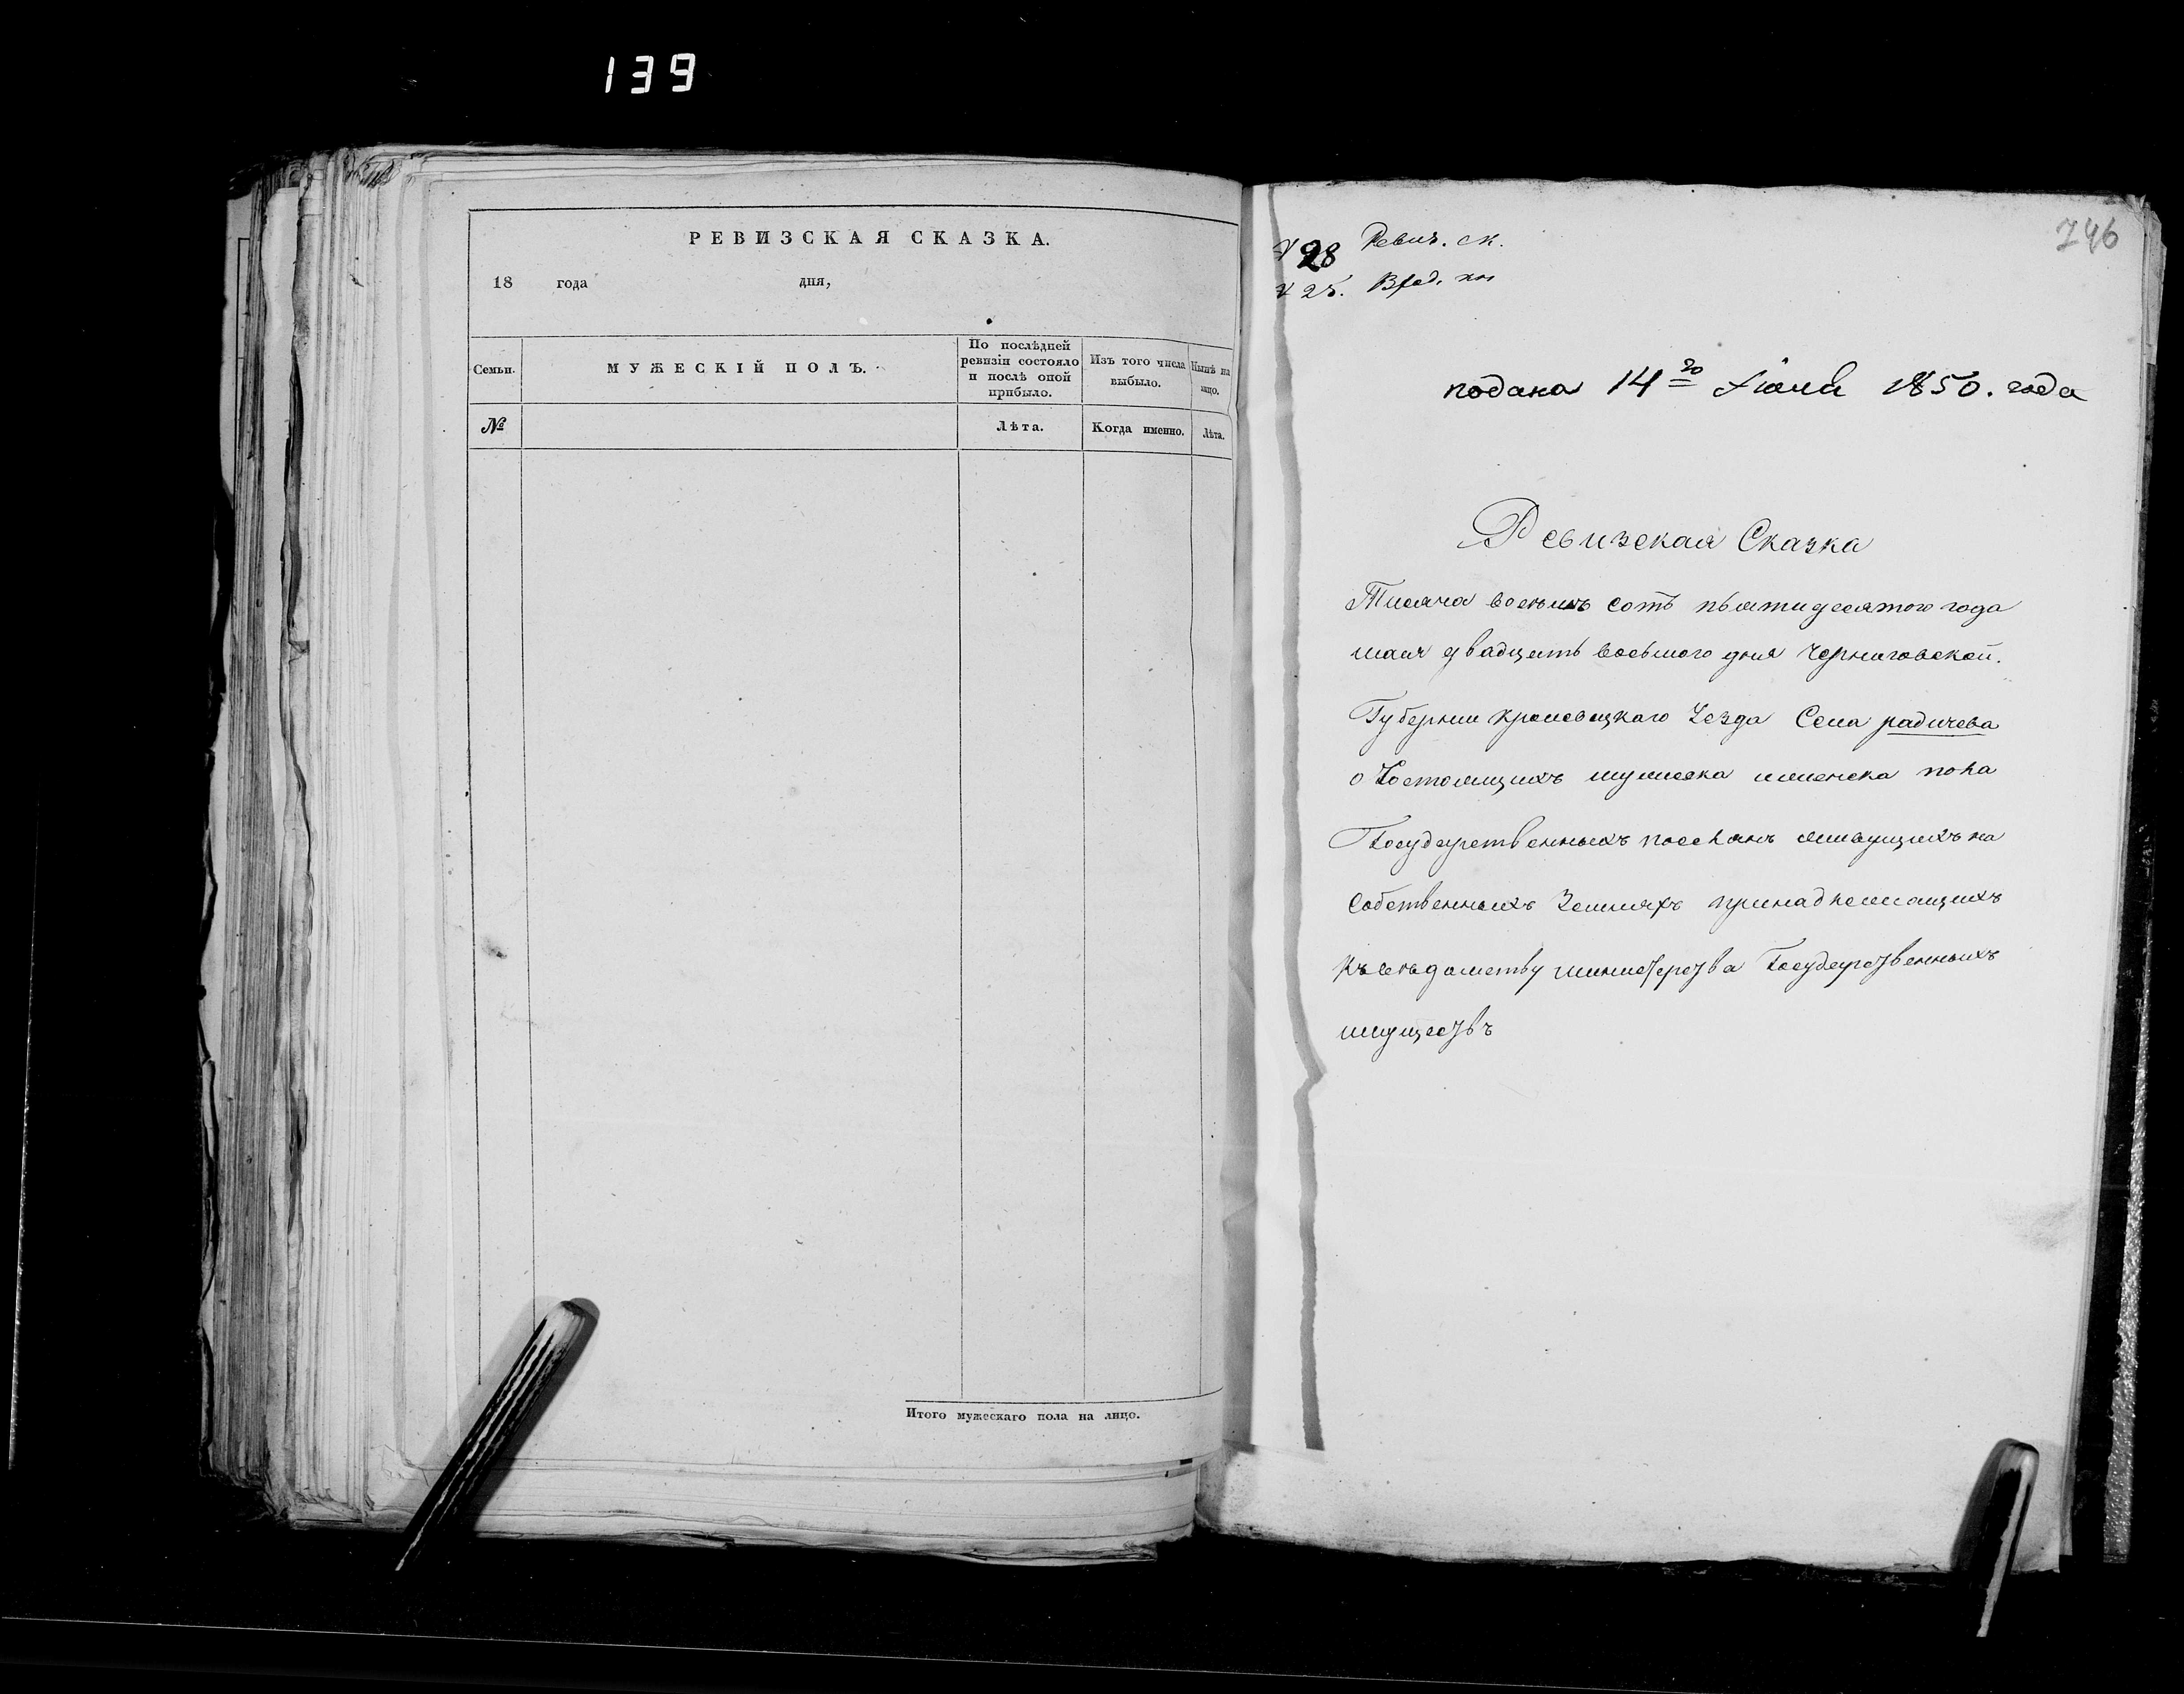 139
РЕВИЗСКАЯ СКАЗКА.
18 года дня,
Семьи.
МУЖЕСКІЙ ПОЛЪ.
По послѣдней ревизіи состояло и послѣ оной прибыло.
Изъ того числа выбыло.
Нынѣ на лицо.
№
Лѣта.
Когда именно.
Лѣта.
Итого мужескаго пола на лицо.
746
28 Ревиз. ск.
25.
подана 14го Іюня 1850. года
Ревизская Сказка
Тисяча восемъ сотъ пьятидесятого года
мая двадцать восьмого дня Черниговской.
Губернии кролевецкаго Уезда Села радичева
о Состоящихъ мужеска иженска пола
Государственныхъ поселянъ живущихъ на
Собственныхъ Земляхъ принадлежащихъ
къ вѣдомству министерства Государственныхъ
имуществъ